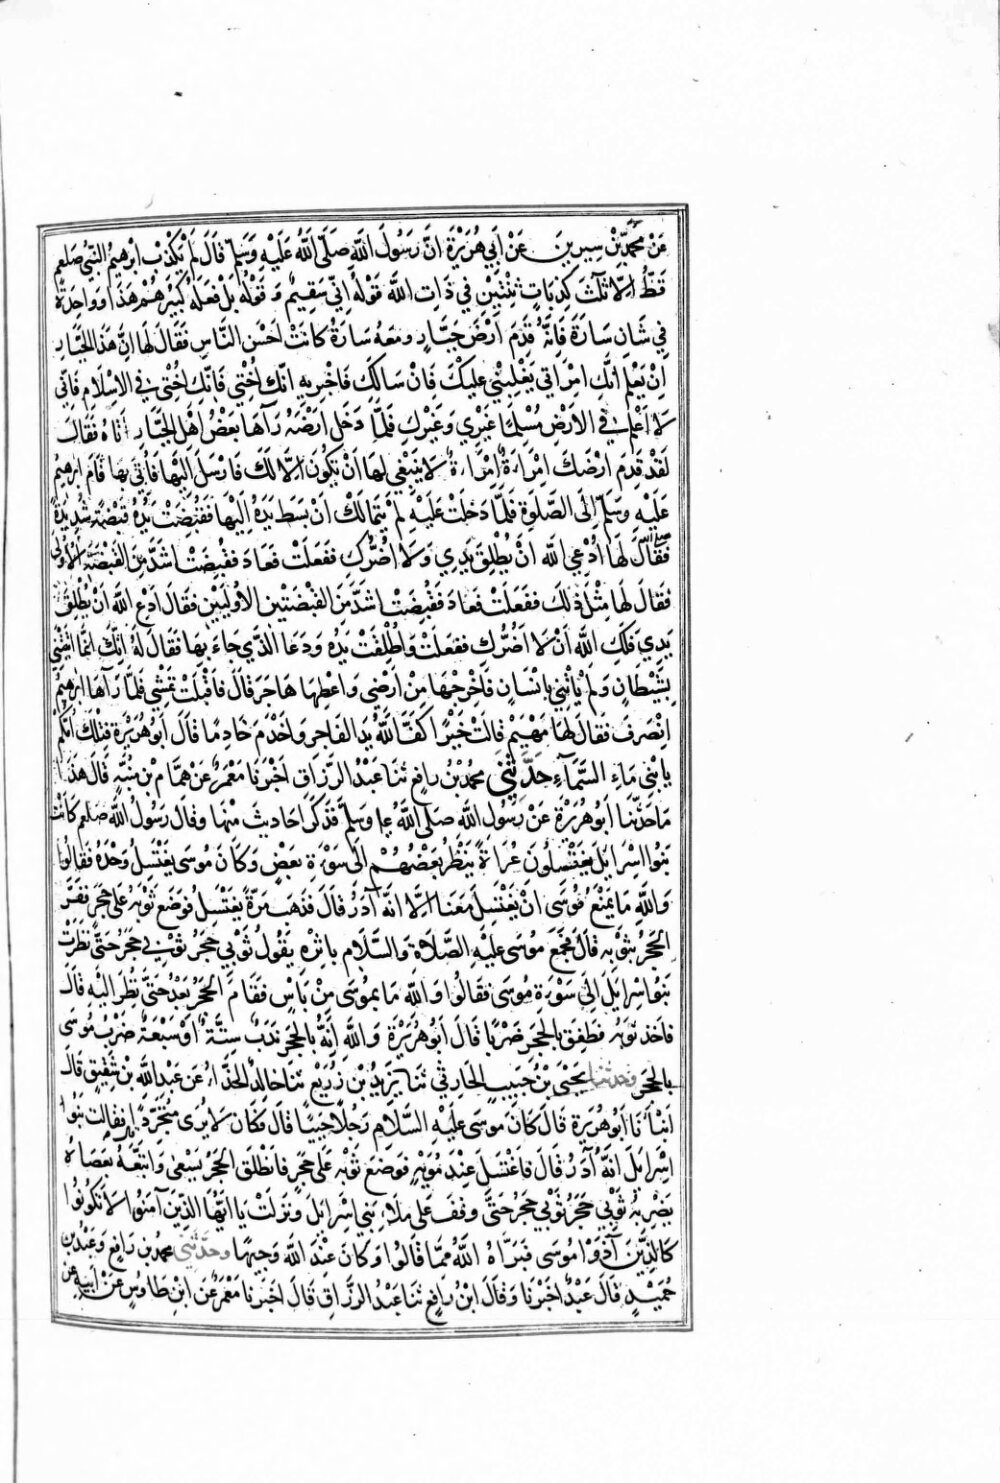 عَنْ مُحَمَّدِ بْنِ سِيرِينَ عَنْ أَبِي هُرَيْرَةَ انَّ رَسُولَ اللَّهِ صَلَّى اللَّهُ عَلَيْهِ وَسَلَّمَ قَالَ لَمْ يَكْذِبْ ابْرَهِيمُ النَّبِيُّ صلعم
قَطُّ الَّا ثَلَثَ كَذِبَاتٍ ثِنْتَيْنِ فِي ذَاتِ اللَّهِ قَوْلُهُ اِنِّي سَقِيمٌ وَقَوْلُهُ بَلْ فَعَلَهُ كَبِيرُهُمْ هَذَا وَوَاحِدَةً
فِي شَانِ سَارَةَ فَاِنَّهُ قَدِمَ اَرْضَ جَبَّارٍ وَمَعَهُ سَارَةُ كَانَتْ اَحْسَنَ النَّاسِ فَقَالَ لَهَا اِنَّ هَذَا الْجَبَّارَ
اِنْ يَعْلَمْ اَنَّكِ امْرَاَتِي يَغْلِبْنِي عَلَيْكِ فَاِنْ سَالَكِ فَاَخْبِرِيهِ اَنَّكِ اُخْتِي فَاِنَّكِ اُخْتِي فِي الاِسْلَامِ فَاِنِّي
لَا اَعْلَمُ فِي الاَرْضِ مُسْلِمًا غَيْرِي وَغَيْرَكِ فَلَمَّا دَخَلَ اَرْضَهُ رَآهَا بَعْضُ اَهْلِ الْجَبَّارِ اَتَاهُ فَقَالَ
لَقَدْ قَدِمَ اَرْضَكَ امْرَاَةٌ لَا يَنْبَغِي لَهَا اَنْ تَكُونَ اِلَّا لَكَ فَارْسَلَ اِلَيْهَا فَاُتِيَ بِهَا فَقَامَ ابْرَهِيمُ
عَلَيْهِ وَسَلَّمَ اِلَى الصَّلَوةِ فَلَمَّا دَخَلَتْ عَلَيْهِ لَمْ يَتَمَالَكْ اَنْ بَسَطَ يَدَهُ اِلَيْهَا فَقُبِضَتْ يَدُهُ قَبْضَةً شَدِيدَةً
فَقَالَ لَهَا اُدْعِي اللَّهَ اَنْ يُطْلِقَ يَدِي وَلَا اَضُرُّكِ فَفَعَلَتْ فَعَادَ فَقُبِضَتْ اَشَدَّ مِنَ الْقَبْضَةِ الْاُولَى
فَقَالَ لَهَا مِثْلَ ذَلِكَ فَفَعَلَتْ فَعَادَ فَقُبِضَتْ اَشَدَّ مِنَ الْقَبْضَتَيْنِ الاُولَيَيْنِ فَقَالَ ادْعِ اللَّهَ اَنْ يُطْلِقَ
يَدِي فَلَكِ اللَّهَ اَنْ لَا اَضُرُّكِ فَفَعَلَتْ وَاُطْلِقَتْ يَدُهُ وَدَعَا الَّذِي جَاءَ بِهَا فَقَالَ لَهُ اِنَّكَ اِنَّمَا اَتَيْتَنِي
بِشَيْطَانٍ وَلَمْ يَاْتِنِي بِانْسَانٍ فَاَخْرِجْهَا مِنْ اَرْضِي وَاعْطِهَا هَاجَرَ قَالَ فَاَقْبَلَتْ تَمْشِي فَلَمَّا رَآهَا ابْرَهِيمُ
انْصَرَفَ فَقَالَ لَهَا مَهْيَمْ قَالَتْ خَيْرًا كَفَّ اللَّهُ يَدَ الْفَاجِرِ وَاَخْدَمَ خَادِمًا قَالَ اَبُو هُرَيْرَةَ فَتِلْكَ اُمُّكُمْ
يَا بَنِي مَاءِ السَّمَآءِ حَدَّثَنِي مُحَمَّدُ بْنُ رَافِعٍ ثَنَا عَبْدُ الرَّزَّاقِ اَخْبَرَنَا مَعْمَرٌ عَنْ هَمَّامِ بْنِ مُنَبِّهٍ قَالَ هَذَا
مَا حَدَّثَنَا اَبُو هُرَيْرَةَ عَنْ رَسُولِ اللَّهِ صَلَّى اللَّهُ عليه وَسَلَّمَ فَذَكَرَ اَحَادِيثَ مِنْهَا وَقَالَ رَسُولُ اللَّهِ صلعم كَانَتْ
بَنُوا اِسْرَايِلَ يَغْتَسِلُونَ عُرَاةً يَنْظُرُ بَعْضُهُمْ اِلَى سَوْءَةِ بَعْضٍ وَكَانَ مُوسَى يَغْتَسِلُ وَحْدَهُ فَقَالُوا
وَاللَّهِ مَا يَمْنَعُ مُوسَى اَنْ يَغْتَسِلَ مَعَنَا اِلَّا اَنَّهُ آدَرُ قَالَ فَذَهَبَ مَرَّةً يَغْتَسِلُ فَوَضَعَ ثَوْبَهُ عَلَى حَجَرٍ فَفَرَّ
الْحَجَرُ بِثَوْبِهِ قَالَ فَجَمَحَ مُوسَى عَلَيْهِ الصَّلَاةُ وَالسَّلَامُ بِاثْرِهِ يَقُولُ ثَوْبِي حَجَرُ ثَوْبِي حَجَرُ حَتَّى نَظَرَتْ
بَنُوا اِسْرَايِلَ اِلَى سَوْءَةِ مُوسَى فَقَالُوا وَاللَّهِ مَا بِمُوسَى مِنْ بَاْسٍ فَقَامَ الْحَجَرُ بَعْدُ حَتَّى نُظِرَ اِلَيْهِ قَالَ
فَاخَذَ ثَوْبَهُ فَطَفِقَ بِالْحَجَرِ ضَرْبًا قَالَ اَبُو هُرَيْرَةَ وَاللَّهِ اِنَّهُ بِالْحَجَرِ نَدَبٌ سِتَّةٌ اَوْ سَبْعَةٌ ضَرْبُ مُوسَى
بِالْحَجَرِ وَحَدَّثَنَا يَحْيَى بْنُ حَبِيبٍ الْحَارِثِيُّ ثَنَا يَزِيدُ بْنُ زُرَيْعٍ ثَنَا خَالِدٌ الْحَذَّاءُ عَنْ عَبْدِ اللَّهِ بْنِ شَقِيقٍ قَالَ
اَنْبَاَنَا اَبُو هُرَيْرَةَ قَالَ كَانَ مُوسَى عَلَيْهِ السَّلَامِ رَجُلًا حَيِيًّا قَالَ فَكَانَ لَا يُرَى مُتَجَرِّدًا فَقَالَتْ بَنُوا
اِسْرَايِلَ اَنَّهُ آدَرُ قَالَ فَاغْتَسَلَ عِنْدَ مُوَيْهٍ فَوَضَعَ ثَوْبَهُ عَلَى حَجَرٍ فَانْطَلَقَ الْحَجَرُ يَسْعَى وَاتَّبَعَهُ بِعَصَاهُ
يَضْرِبُهُ ثَوْبِي حَجَرُ ثَوْبِي حَجَرُ حَتَّى وَقَفَ عَلَى مَلَاءِ بَنِي اِسْرَايِلَ وَنَزَلَتْ يَا اَيُّهَا الَّذِينَ آمَنُوا لَا تَكُونُوا
كَالَّذِينَ آذَوْا مُوسَى فَبَرَّاَهُ اللَّهُ مِمَّا قَالُوا وَكَانَ عِنْدَ اللَّهِ وَجِيهًا وَحَدَّثَنِي مُحَمَّدُ بْنُ رَافِعٍ وَعَبْدُ بْنُ
حُمَيْدٍ قَالَ عَبْدٌ اَخْبَرَنَا وَقَالَ ابْنُ رَافِعٍ ثَنَا عَبْدُ الرَّزَّاقِ قَالَ اَخْبَرَنَا مَعْمَرٌ عَنِ ابْنِ طَاوُسٍ عَنْ اَبِيهِ عَنْ